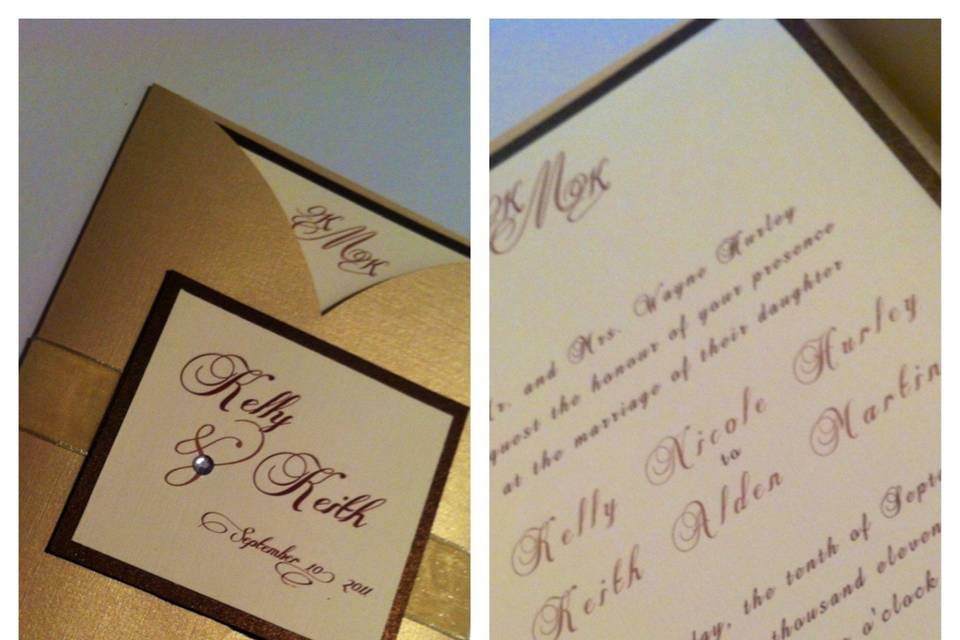 KMK
Kelly
&
Keith
September 10 2011
KMK
Mr. and Mrs. Wayne Hurley
quest the honour of your presence
at the marriage of their daughter
Kelly Nicole Hurley
to
Keith Alden Martin
day, the tenth of Septe
thousand eleven
o'clock